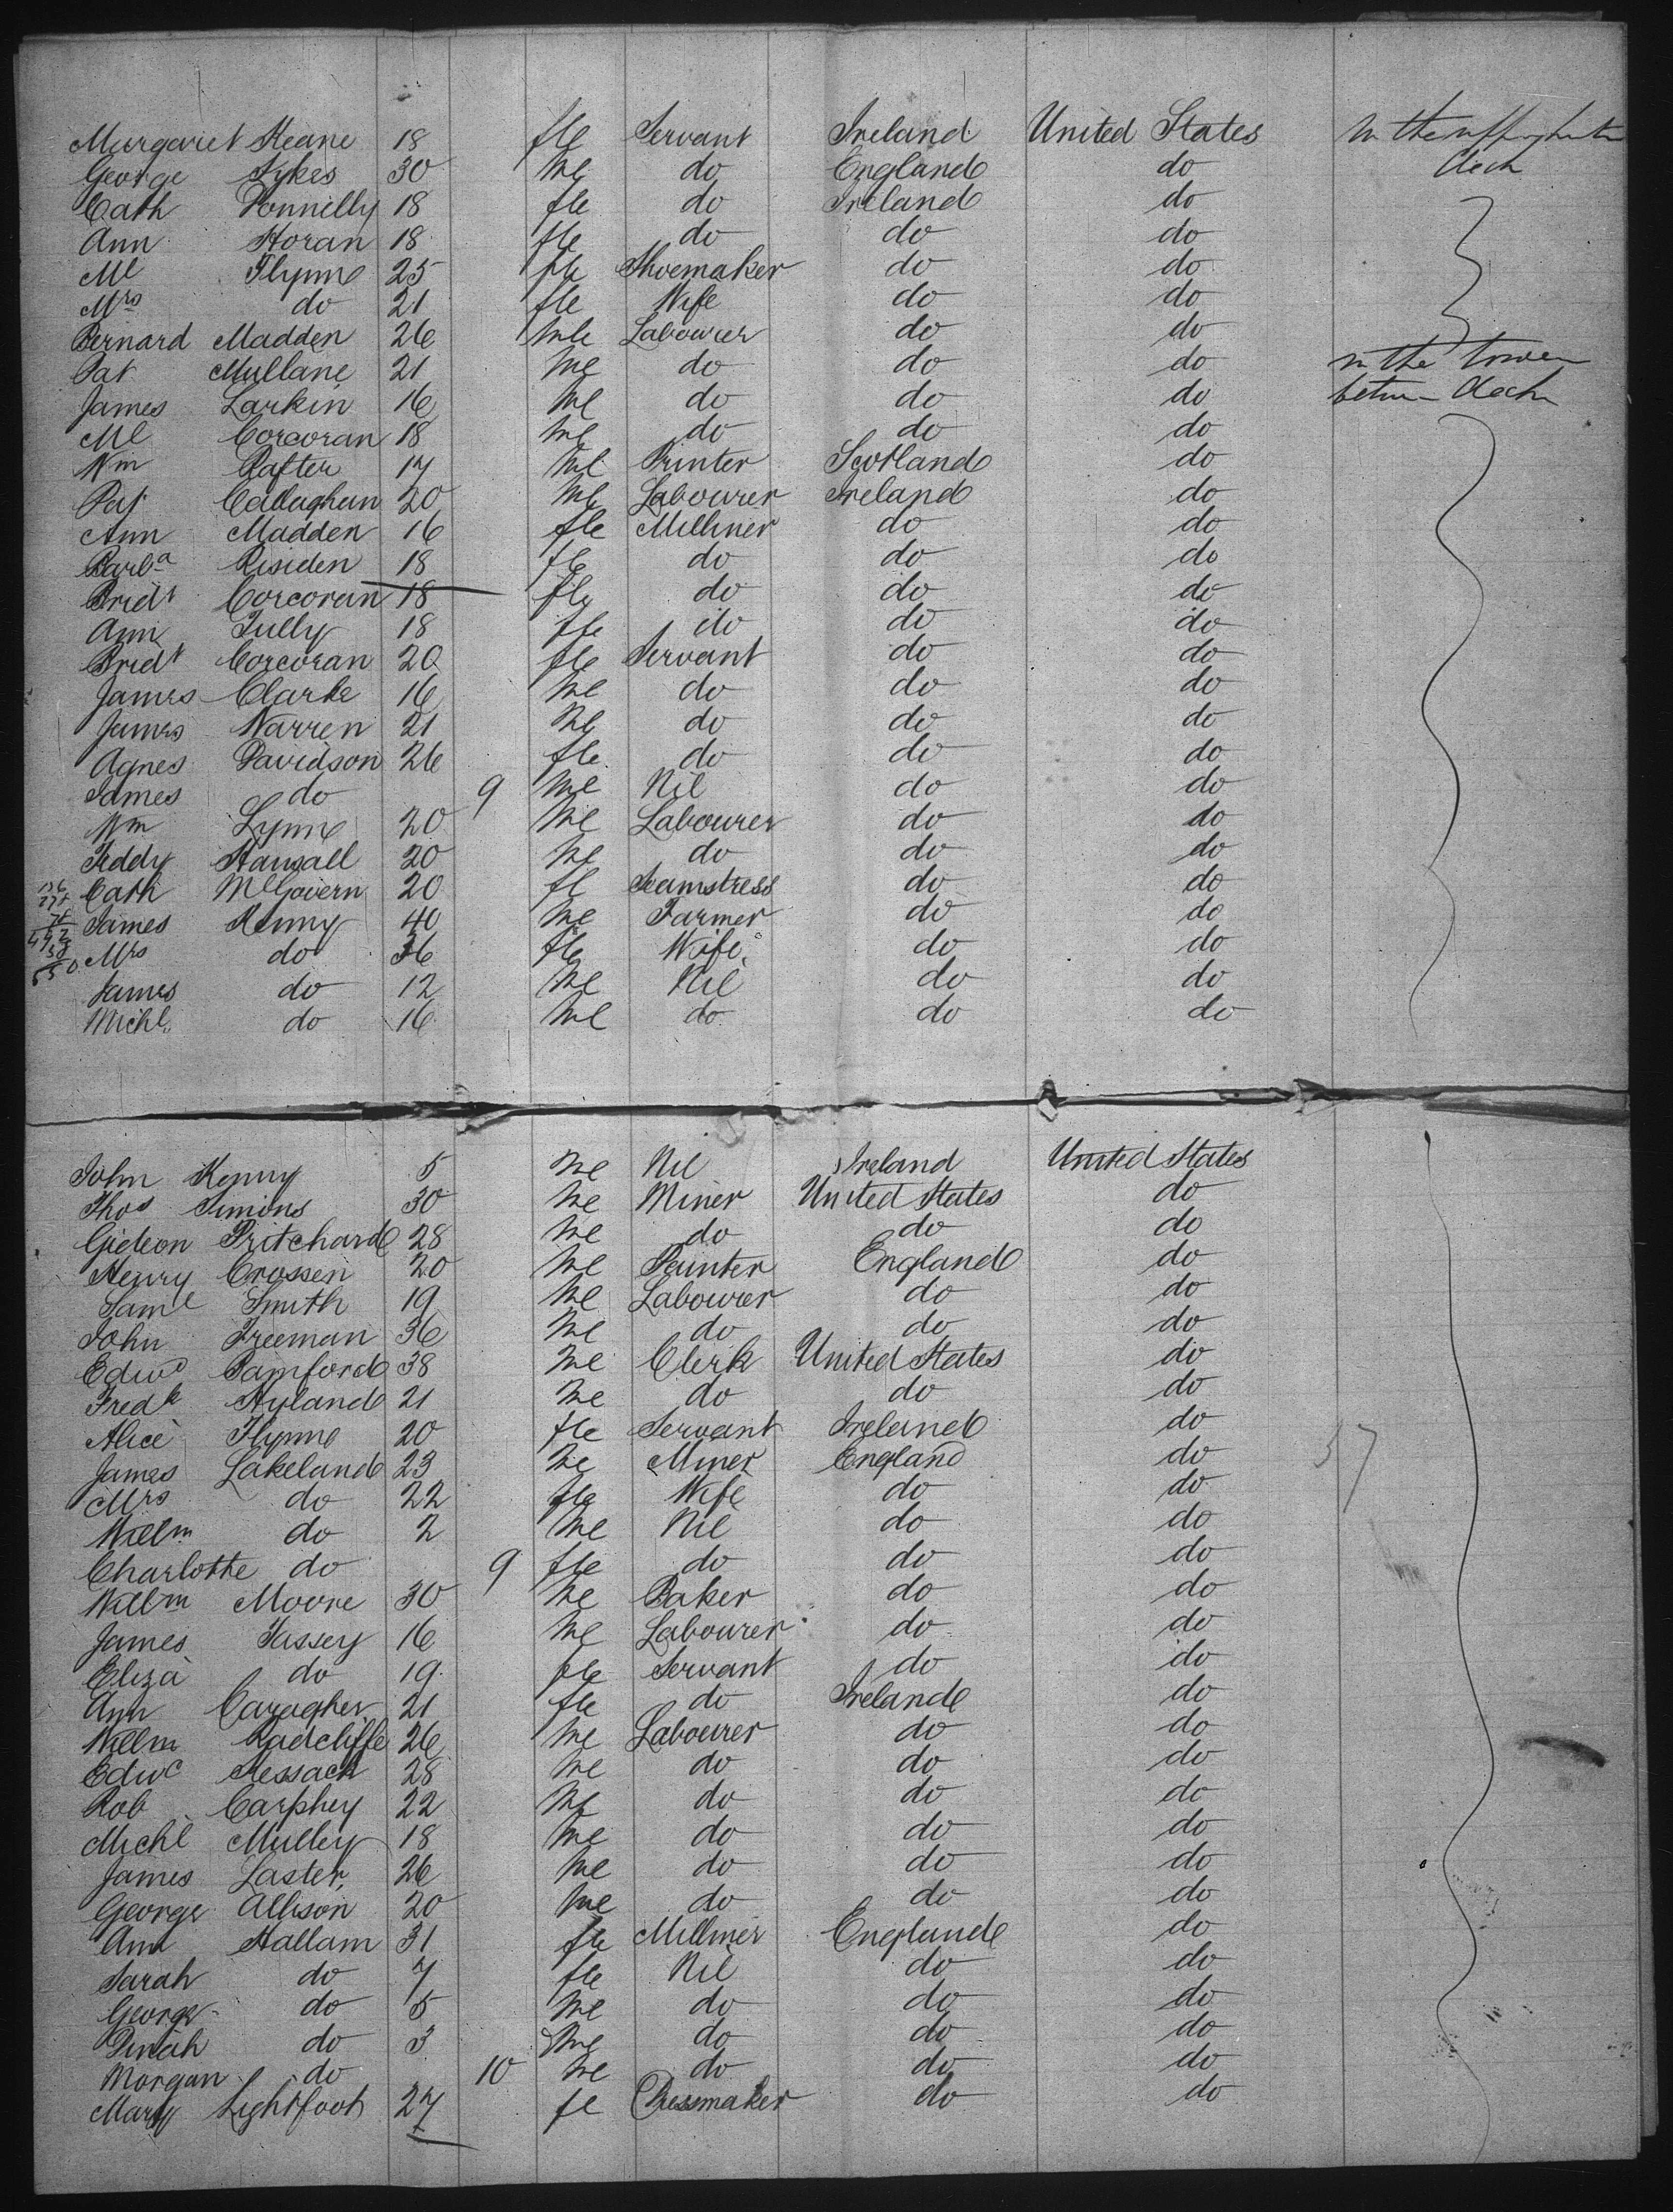 Margaret Keane 18 fle Servant Ireland United States In the upper
George Sykes 30 Me do England do deck
Cath Donnilly 18 fle do Ireland do
Ann Horan 18 fle do do do
Ml Flynn 25 fle Shoemaker do do
Mrs do 21 fle Wife do do
Bernard Madden 26 Mle Labourer do do
Pat Mullane 21 Me do do do in the lower
James Larkin 16 Me do do do betwn deck
Ml Corcoran 18 Me do do do
Wm Rafter 17 Me Printer Scotland do
Pat Callaghan 20 Me Labourer Ireland do
Ann Madden 16 fle Milliner do do
Barba Risiden 18 fle do do do
Bridt Corcoran 18 fle do do do
Ann Tully 18 fle do do do
Bridt Corcoran 20 fle Servant do do
James Clarke 16 Me do do do
James Warren 21 Me do do do
Agnes Davidson 26 fle do do do
James do 9 Me Nil do do
Wm Lynn 20 Me Labourer do do
Teddy 20 Me do do do
Cath McGovern 20 fe Seamstress do do
James Kenny 40 Me Farmer do do
Mrs do 36 fle Wife do do
James do 12 Me Nil do do
Michl do 16 Me do do do
John Kenny 5 Me Nil Ireland United States
Thos Simons 30 Me Miner United States do
Gideon Pritchard 28 Me do do do
Henry Crossen 20 Me Painter England do
Saml Smith 19 Me Labourer do do
John Freeman 36 Me do do do
Edwd Bamford 38 Me Clerk United States do
Fredk Hyland 21 Me do do do
Alice Flynn 20 fle Servant Ireland do
James Lakeland 23 Me Miner England do 57
Mrs do 22 fle Wife do do
Willm do 2 Me Nil do do
Charlotte do 9 fle do do do
Willm Moore 30 Me Baker do do
James Tassey 16 Me Labourer do do
Eliza do 19 fle Servant do do
Ann Caragher 21 fle do Ireland do
Willm Radcliffe 26 Me Labourer do do
Edwd Kessack 28 Me do do do
Rob Carphey 22 Me do do do
Michl Mulley 18 Me do do do
James Laster 26 Me do do do
George Allison 20 Me do do do
Ann Hallam 31 fle Milliner England do
Sarah do 7 fle Nil do do
George do 5 Me do do do
Dinah do 3 Me do do do
Morgan do 10 Me do do do
Mary Lightfoot 27 fe Dressmaker do do